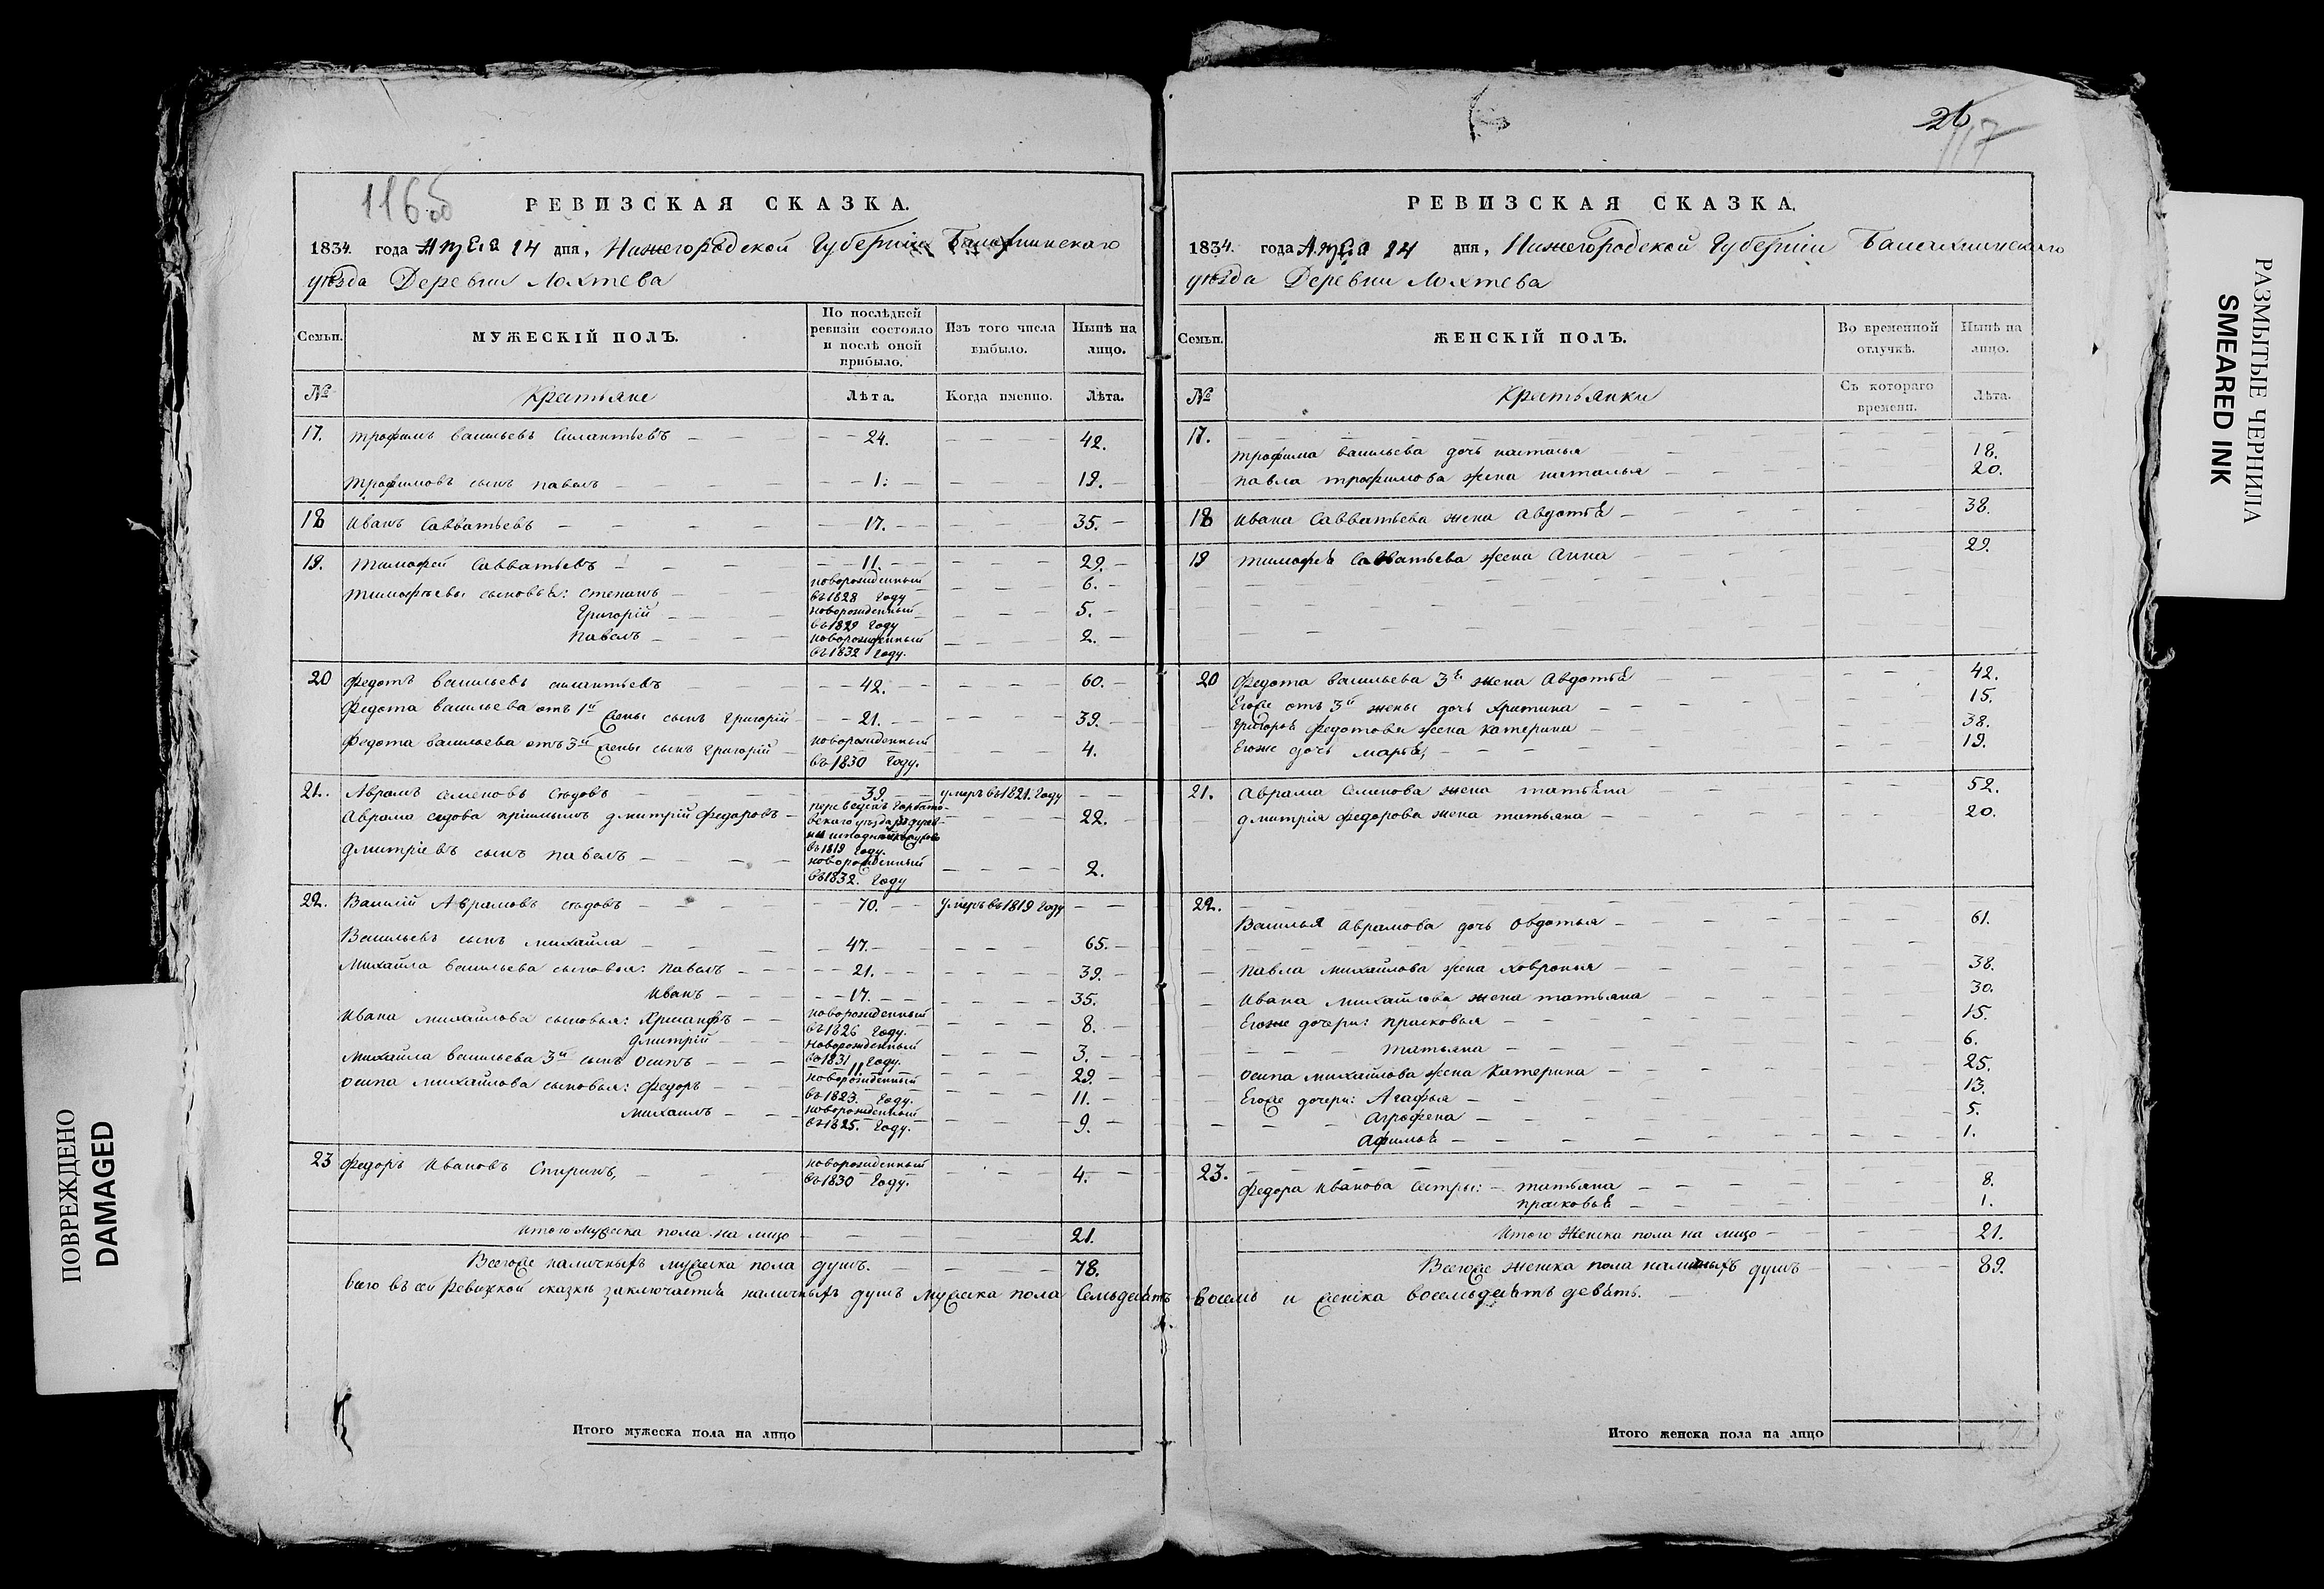 116 об
РЕВИЗСКАЯ СКАЗКА.
1834. года Апреля 24 дня, Нижегородской Губернии Балахнинскаго
уѣзда Деревни Лохтева
Семьи. МУЖЕСКІЙ ПОЛЪ. По послѣдней ревизіи состояло и послѣ оной прибыло. Изъ того числа выбыло. Нынѣ на лицо.
№ Крестьяне Лѣта. Когда именно. Лѣта.
17. трофимъ васильевъ Силантьевъ 24. 42.
трофимовъ сынъ павелъ 1. 19.
18 иванъ Савватьевъ 17. 35.
19. тимофей Савватьевъ 11. 29.
тимофѣевы сыновья: степанъ новорожденный въ 1828 году 6.
Григорій новорожденный въ 1829 году 5.
павелъ новорожденный въ 1832 году. 2.
20 федотъ васильевъ силантьевъ 42. 60.
федота васильева отъ 1й жены сынъ григорій 21. 39.
федота васильева отъ 3й жены сынъ григорій новорожденный въ 1830 году. 4.
21. Аврамъ семеновъ сѣдовъ 39. умеръ въ 1821. году
Аврама седова пріимышъ дмитрій федоровъ переведенъ Горбатовскаго уѣзда въ 1819 году. 22.
дмитріевъ сынъ павелъ новорожденный въ 1832. году 2.
22. Василій Аврамовъ сѣдовъ 70. умеръ въ 1819 году
Васильевъ сынъ михайла 47. 65.
михайла васильева сыновья: павелъ 21. 39.
иванъ 17. 35.
ивана михайлова сыновья: Хрисанфъ новорожденный въ 1826 году. 8.
дмитрій новорожденный въ 1831 году. 3.
михайла васильева 3й сынъ осипъ 11. 29.
осипа михайлова сыновья: федоръ новорожденный въ 1823. году. 11.
михаилъ новорожденный въ 1825. году. 9.
23 федоръ ивановъ Спиринъ, новорожденный въ 1830 году. 4.
итого мужеска пола на лицо 21.
Всегоже наличныхъ мужеска пола душъ. 78.
всего въ сей Ревижской сказкѣ заключается наличныхъ душъ мужеска пола семьдесятъ восемь и женска восемьдесятъ девять.
Итого мужеска пола на лицо
26
117
РЕВИЗСКАЯ СКАЗКА.
1834. года Апреля 24 дня, Нижегородской Губерніи Балахнинскаго
уѣзда Деревни Лохтева
Семьи. ЖЕНСКІЙ ПОЛЪ. Во временной отлучкѣ. Нынѣ на лицо.
№ Крестьянки Съ котораго времени. Лѣта.
17.
трофима васильева дочь настасья 18.
павла трофимова жена наталья 20.
18 ивана Савватьева жена Авдотья 38.
19 тимофея Савватьева жена Анна 29.
20 федота васильева 3я жена Авдотья 42.
Егоже отъ 3й жены дочь Христина 15.
григорья федотова жена катерина 38.
Егоже дочь марья, 19.
21. Аврама Семенова жена татьяна 52.
дмитрія федорова жена татьяна 20.
22.
Василья Аврамова дочь овдотья 61.
павла михайлова жена ховронья 38.
ивана михайлова жена татьяна 30.
Егоже дочери: прасковья 15.
татьяна 6.
осипа михайлова жена катерина 25.
Егоже дочери: Агафья 13.
Аграфена 5.
Афимья 1.
23.
федора иванова сестры: татьяна 8.
прасковья 1.
итого женска пола на лицо 21.
Всегоже женска пола наличныхъ душъ 89.
Итого женска пола на лицо
ПОВРЕЖДЕНО
DAMAGED
РАЗМЫТЫЕ ЧЕРНИЛА
SMEARED INK